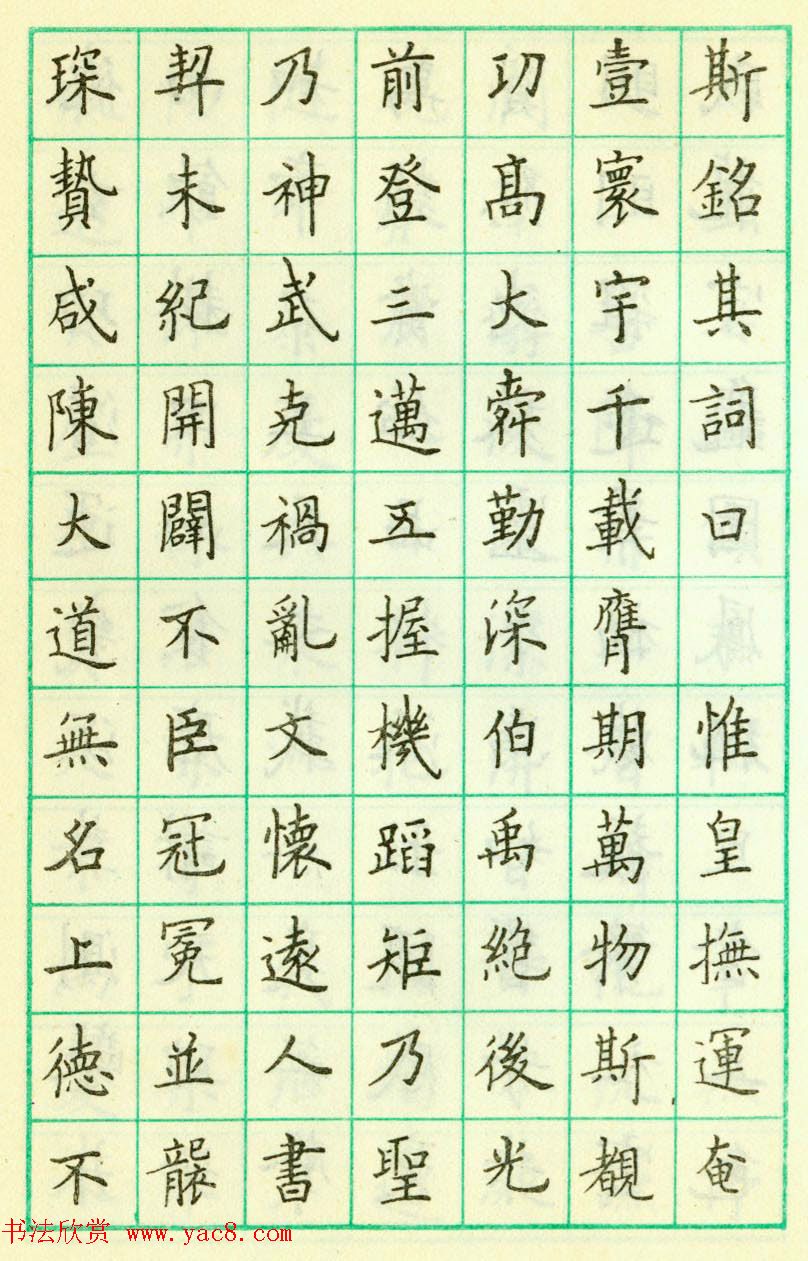 斯銘其詞曰 惟皇撫運奄
壹寰宇千載膺期萬物斯覩
功高大舜勤深伯禹絶後光
前登三邁五握機蹈矩乃聖
乃神武克禍亂文懷遠人書
契未紀開闢不臣冠冕並襲
琛贄咸陳大道無名上德不
书法欣赏 www.yac8.com